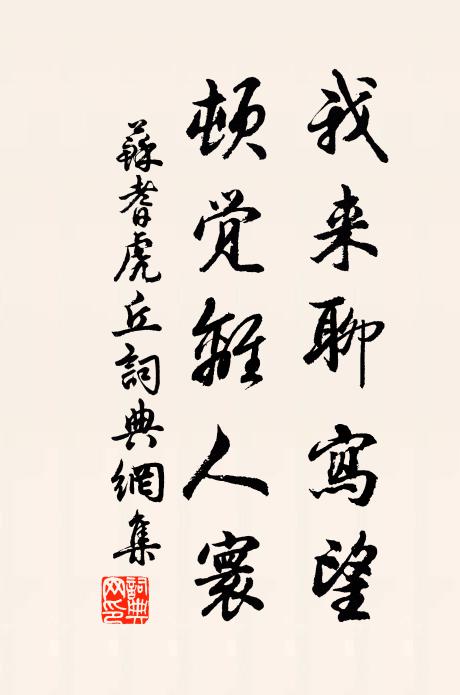 我来聊寫望
頓觉離人寰
蘇耆虎丘詞典網集
詞典网印